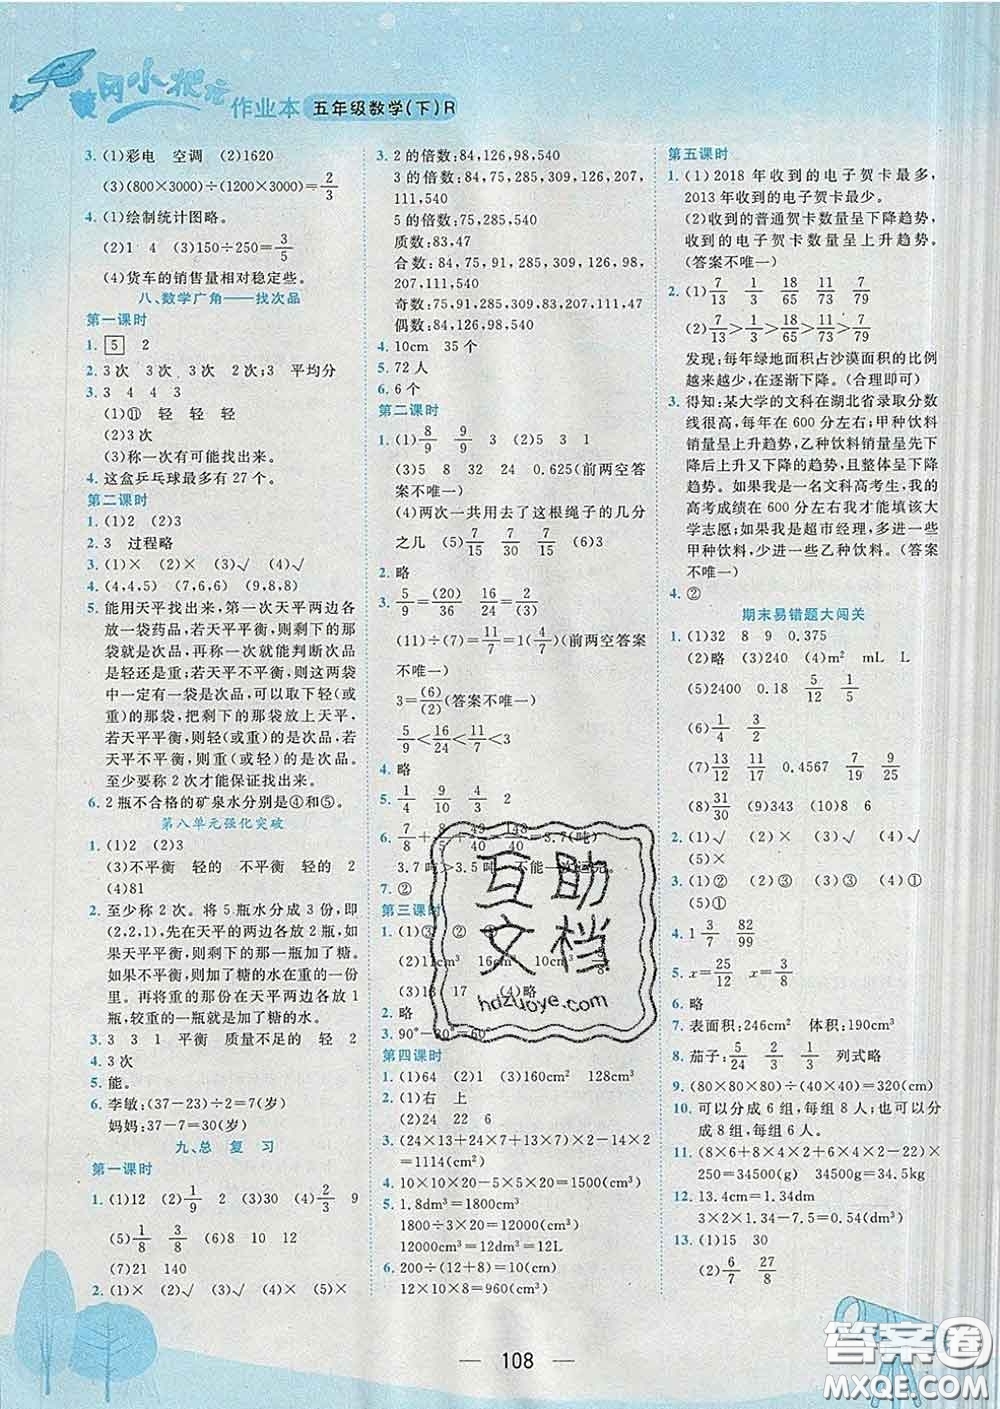 黄冈小状元
作业本 五年级数学(下)R
3. (1)彩电 空调 (2)1620
(3)(800×3000)÷(1200×3000)=2/3
4. (1)绘制统计图略。
(2)1 4 (3)150÷250=3/5
(4)货车的销售量相对稳定些。
八、数学广角——找次品
第一课时
1. 5 2
2. 3次 3次 3次 2次;3 平均分
3. 3 4 4 3
(1)⑪ 轻 轻 轻
(2)3次
(3)称一次有可能找出来。
4. 这盒乒乓球最多有27个。
第二课时
1. (1)2 (2)3
2. 3 过程略
3. (1)× (2)× (3)√ (4)√
4. (4,4,5) (7,6,6) (9,8,8)
5. 能用天平找出来,第一次天平两边各
放一袋药品,若天平平衡,则剩下的那
袋就是次品,再称一次就能判断次品
是轻还是重;若天平不平衡,则这两袋
中一定有一袋是次品,可以取轻(或
重)的那袋,把剩下的那袋放上天平,
若天平平衡,则轻(或重)的是次品,若
天平不平衡,则重(或轻)的是次品。
至少要称2次才能保证找出来。
6. 2瓶不合格的矿泉水分别是④和⑤。
第八单元强化突破
1. (1)2 (2)3
(3)不平衡 轻的 不平衡 轻的 2
(4)81
2. 至少称2次。将5瓶水分成3份,即
(2,2,1),先在天平的两边各放2瓶,如
果天平不平衡,那么重的一端加了糖。
如果不平衡,加了糖的水在重的一份
里。再将重的两瓶在天平两边各放1
瓶,较重的一瓶就是加了糖的水。
3. 3 3 1 平衡 质量不足的 轻 2
4. 3次
5. 能。
6. 李敏:(37-23)÷2=7(岁)
妈妈:37-7=30(岁)
九、总 复 习
第一课时
1. (1)12 (2)1/9 2 (3)30 (4)2/3 9
(5)1/8 3/8 (6)8 10 12
(7)21 140
2. (1)× (2)√ (3)√ (4)× (5)×
3. 2的倍数:84,126,98,540
3的倍数:84,75,285,126,207,
111,540
5的倍数:75,285,540
质数:83,47
合数:84,75,91,285,126,98,207,
111,540
奇数:75,91,285,83,207,111,47
偶数:84,126,98,540
4. 10cm 35个
5. 72人
6. 6个
第二课时
1. (1)8/9 9/9 3 (2)10 5 3 1
(3)5 8 32 24 0.625(前两空答
案不唯一)
(4)两次一共用去了这根绳子的几分
之几 (5)7/15 7/30 7/15 (6)3
2. 略
3. 5/9=(20)/(36) 16/24=2/(3)
(11)÷(7)=11/7=1(4/7)(前两空答案
不唯一)
3=(6)/(2)(答案不唯一)
5/9<16/24<11/7<3
4. 略
5. 1/4 9/10 3/4 2
6. 7/8+
3.7(吨)
3.7吨>3.5吨
7. ②
第三课时
1. (1)③ ②
(2)11cm³
(3)18 17 (4)略
2. 略
3. 90°-30°=60°
第四课时
1. (1)64 (2)1 (3)160cm² 128cm³
2. (1)右 上
(2)24 22 6
3. (24×13+24×9+13×9)×2-14×14
=1114(cm²)
4. 10×10×20-5×10×10=1500(cm³)
5. 1.8dm³=1800cm³
1800÷3×20=12000(cm³)
12000cm³=12dm³=12L
6. 200÷(12+8)=10(cm)
12×10×8=960(cm³)
第五课时
1. (1)2018年收到的电子贺卡最多,
2013年收到的电子贺卡最少。
(2)收到的普通贺卡数量呈下降趋势,
收到的电子贺卡数量呈上升趋势。
(答案不唯一)
2. (1)7/13 1/3 18/65 11/73 7/79
(2)7/13>1/3>18/65>11/73>7/79
发现:每年绿地面积占沙漠面积的比例
越来越少,在逐渐下降。(合理即可)
3. 得知:某大学的文科在湖北省录取分数
线很高,每年在600分左右;甲种饮料
销量呈上升趋势,乙种饮料销量呈先下
降后上升又下降的趋势,且整体呈下降
趋势。如果我是一名文科高考生,我的
高考成绩在600分左右我才能填该大
学志愿;如果我是超市经理,多进一些
甲种饮料,少进一些乙种饮料。(答案
不唯一)
4. ②
期末易错题大闯关
1. (1)32 8 9 0.375
(2)略 (3)240 (4)m² mL L
(5)2400 0.18 5/12 1/5
(6)1/4 3/2
(7)13/12 11/12 0.4567 7/19 9/25
(8)31/9 9/31 (9)略
2. (1)√ (2)× (3)× (4)√
(5)×
3. (1)① (2)② (3)③ (4)①
(5)①
4. 1 3/7 82/99
5. x=25/12 x=3/8
6. 略
7. 表面积:246cm² 体积:190cm³
8. 茄子:5/24 2/3 1/3 列式略
9. (80×80×80)÷(40×40)=320(cm)
10. 可以分成6组,每组8人;也可以分
成8组,每组6人。
11. (8×6+8×2×4+6×2×4-22)×
250=34500(g) 34500g=34.5kg
12. 13.4cm=1.34m
3×2×1.34-7.5=0.54(m³)
13. (1)15 30
(2)6/7 27/8
互助
文档
hdzuoye.com
108
答案圈
MXQE.COM